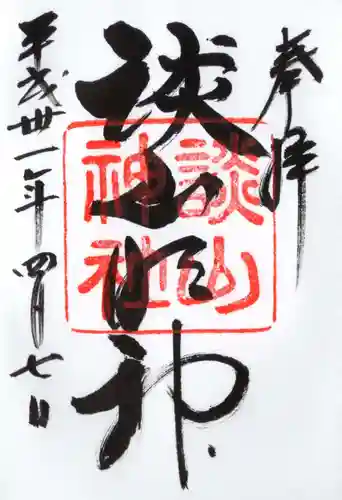 奉拝
談山明神
談山
神社
平成卅一年四月七日